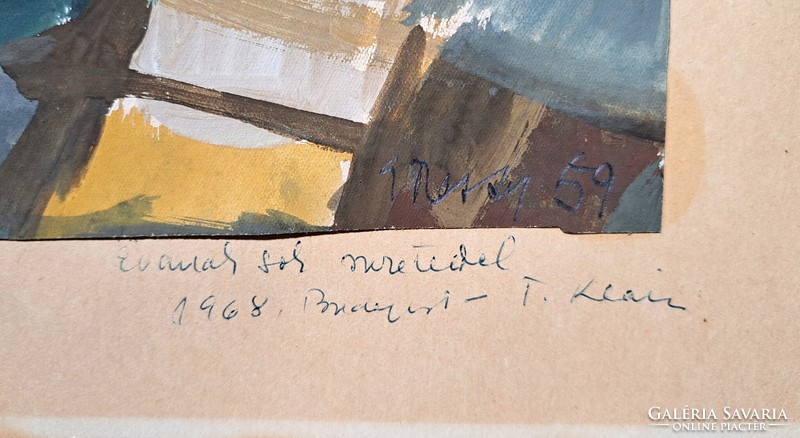 59
Évának sok szeretettel
1968. Budapest – T. Klári
GALÉRIA SAVARIA
ONLINE PIACTÉR